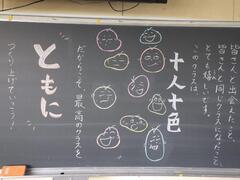 皆さんと出会えたこと、
皆さんと同じクラスになったこと、
とても嬉しいです。
このクラスは、
十人十色
だからこそ、最高のクラスを
ともに
つくり上げていこう!